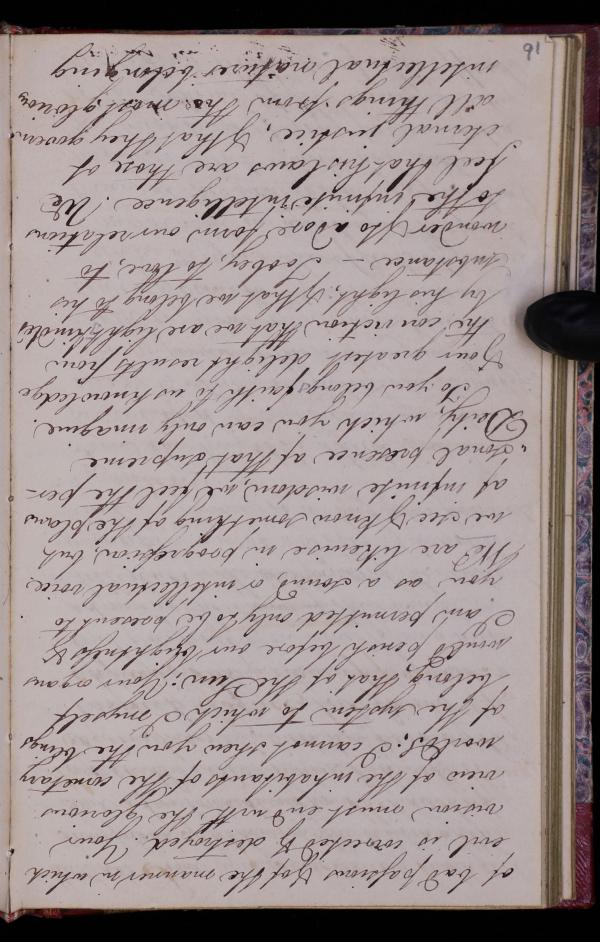 of bad passions & of the manner in which
evil is corrected & destroyed. Your
vision must end with the glorious
view of the inhabitants of the cometary
worlds; I cannot shew you the beings
of the system to which I myself
belong, that of the Sun; Your organs
would perish before our brightness &
I am permitted only to be present to
you as a sound, or intellectual voice.
We are likewise in progression, but
we see & know something of the plans
of infinite wisdom, we feel the per-
-sonal presence of that supreme
Deity, which you can only imagine.
To you belongs faith to us knowledge
& our greatest delight results from
the conviction that we are lights kindled
by his light, & that we belong to his
substance – To obey, to love, to
wonder & to adore form our relations
to the infinite intelligence. We
feel that his laws are those of
eternal justice, & that they govern
all things from the most glorious
intellectual natures belonging
91